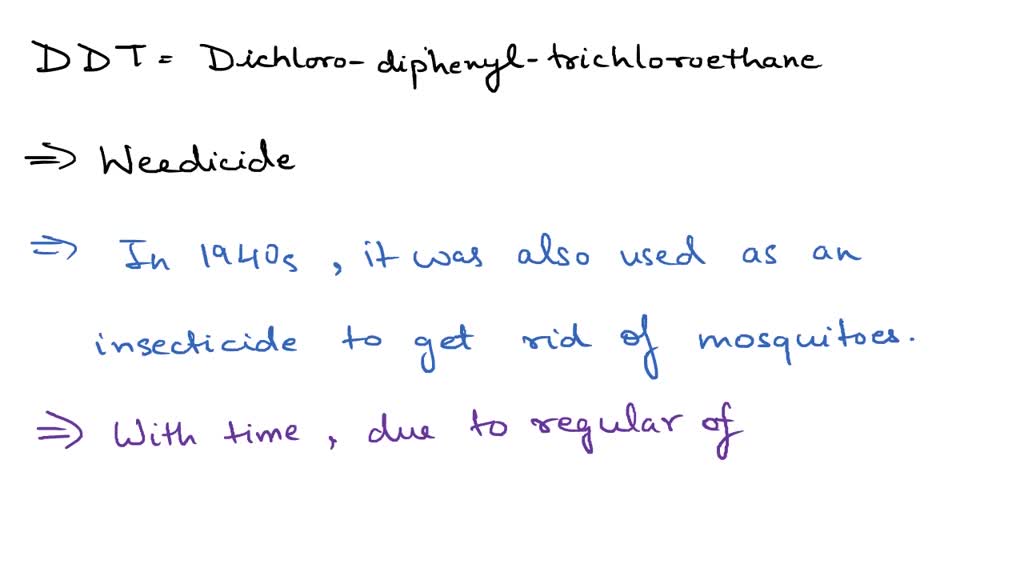 DDT = Dichloro-diphenyl-trichloroethane
⇒ Weedicide
⇒ In 1940s, it was also used as an
insecticide to get rid of mosquitoes.
⇒ With time, due to regular of